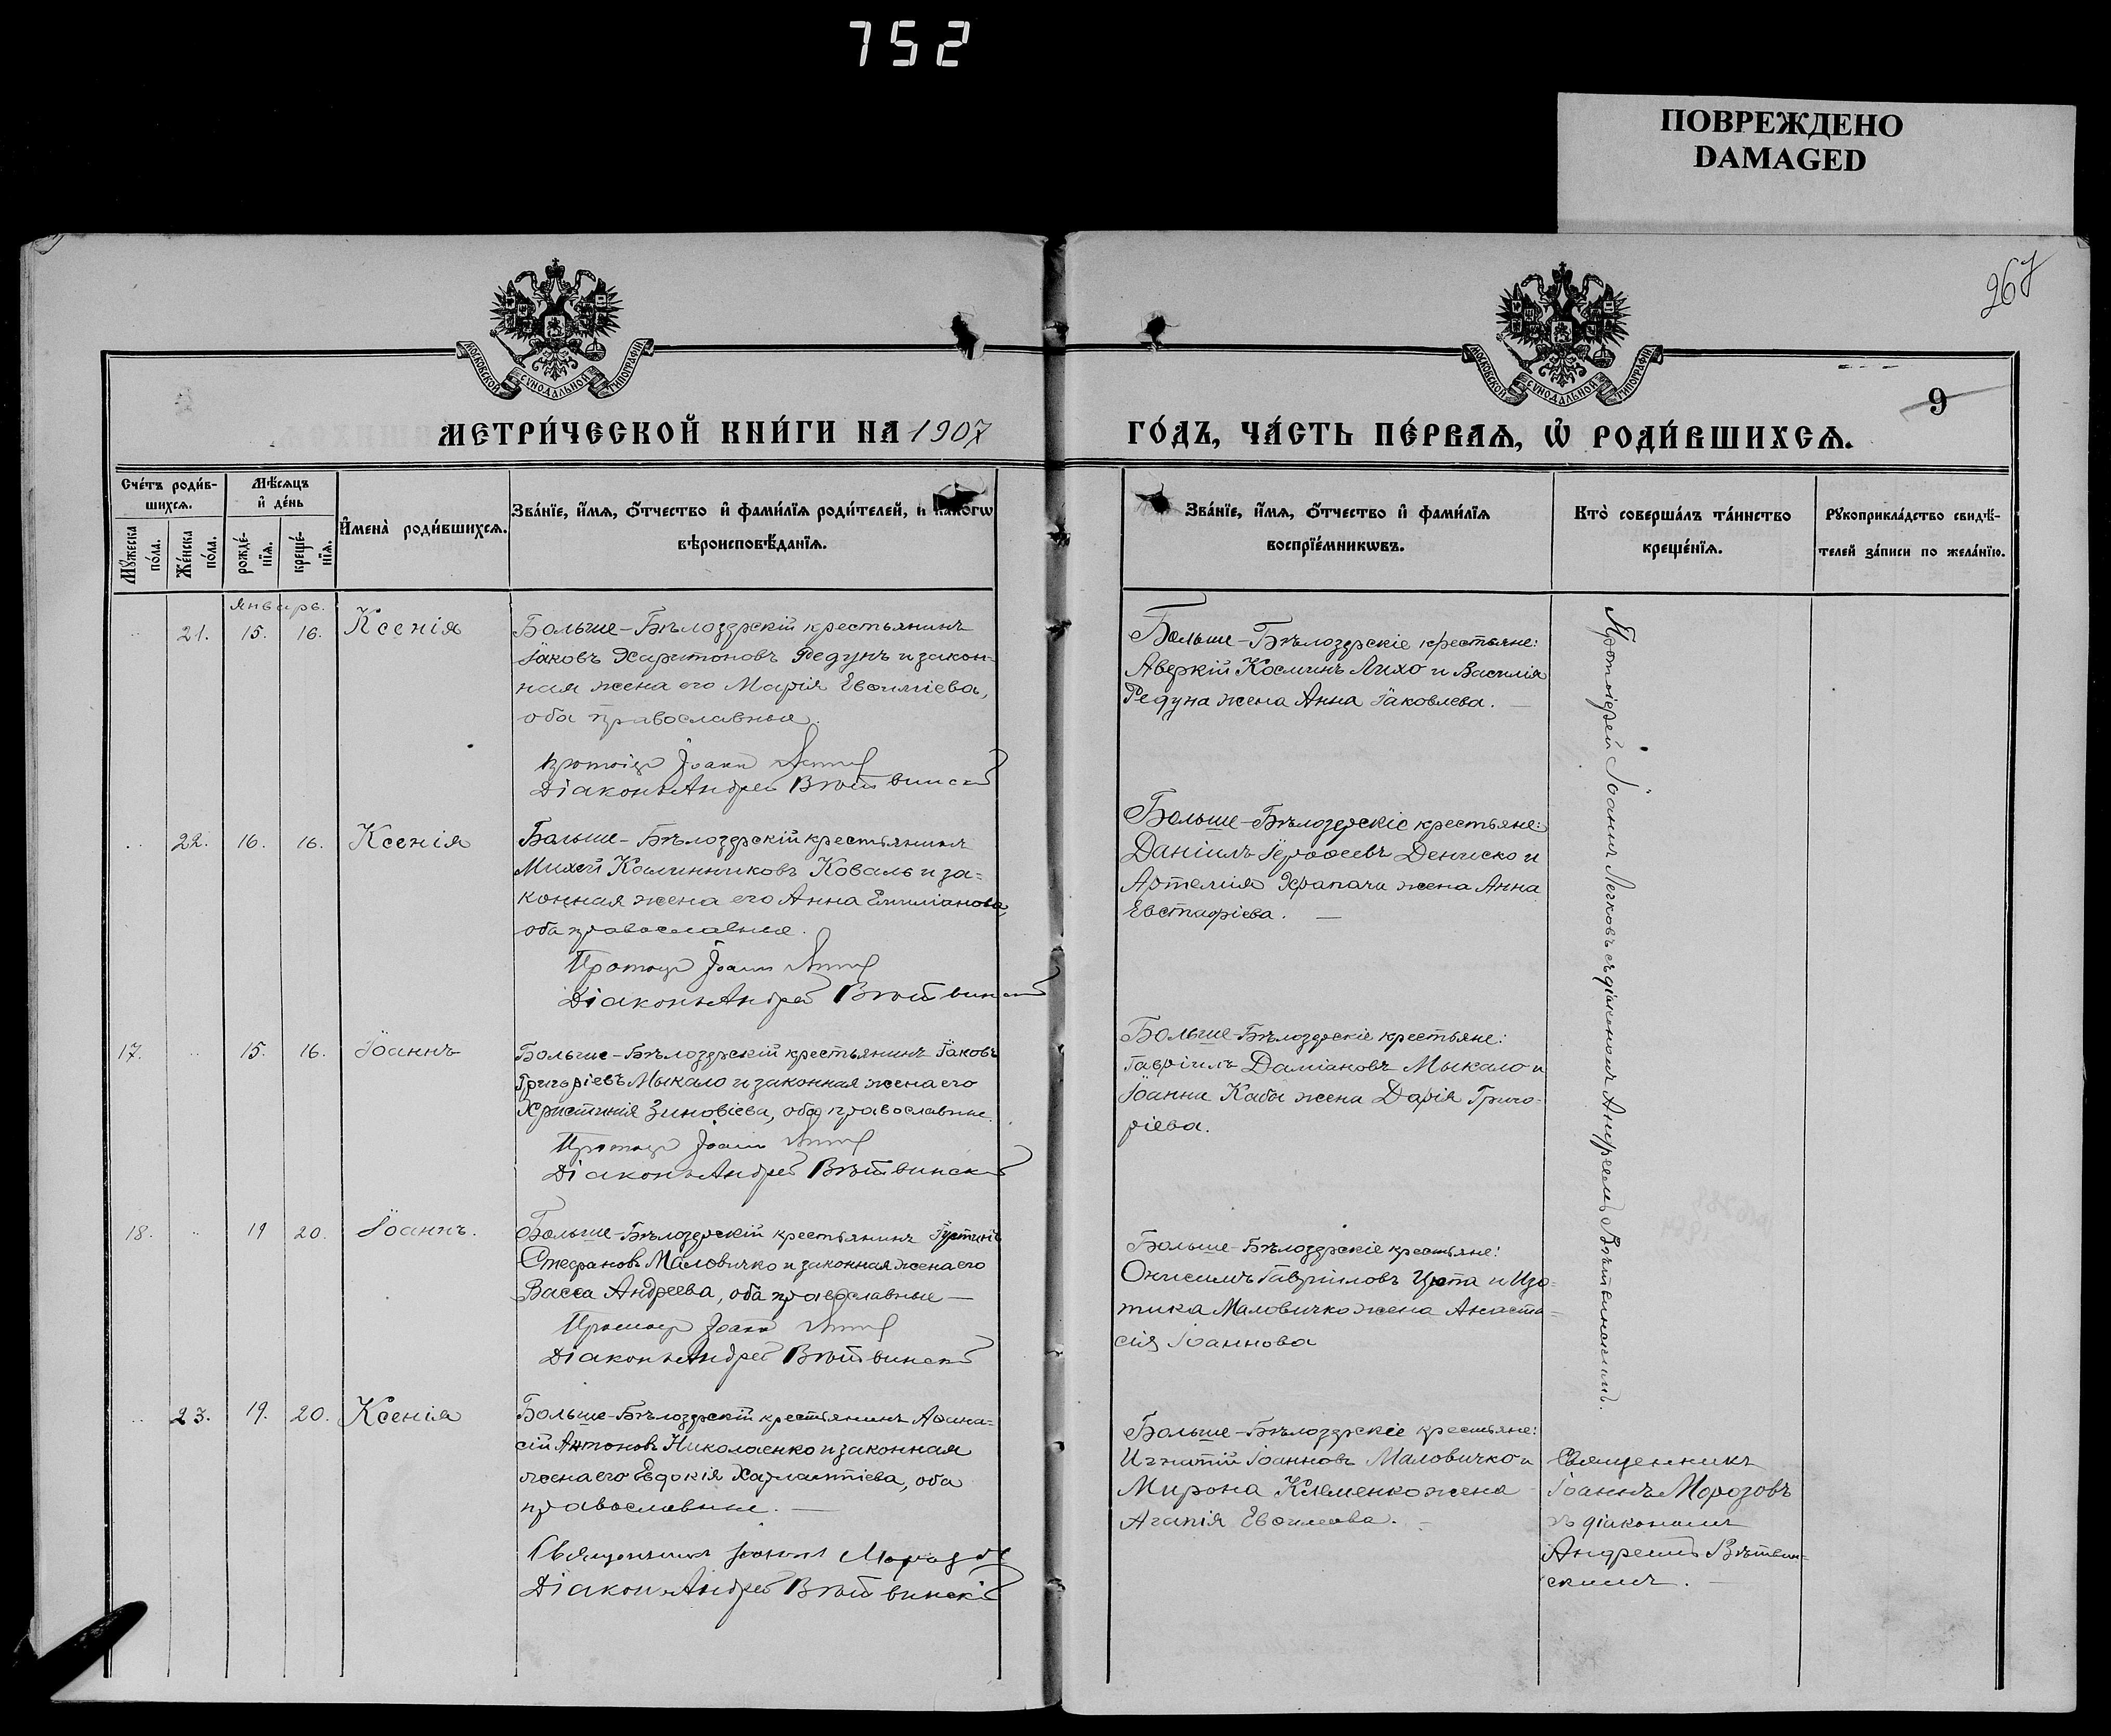 752
ПОВРЕЖДЕНО
DAMAGED
267
МОСКОВСКОЙ СѴНОДАЛЬНОЙ ТИПОГРАФІИ
МОСКОВСКОЙ СѴНОДАЛЬНОЙ ТИПОГРАФІИ
9
МЕТРИ́ЧЕСКОЙ КНИ́ГИ НА 1907
ГО́ДЪ, ЧА́СТЬ ПЕ́РВАѦ, Ѡ҆ РОДИ́ВШИХСѦ.
Сче́тъ роди́в-
шихсѧ.
Мꙋ́жеска
по́ла.
Же́нска
по́ла.
Мѣ́сѧцъ
и҆ де́нь
рожде́-
нїѧ.
креще́-
нїѧ.
И҆мена̀ роди́вшихсѧ.
Зва́нїе, и҆́мѧ, ѻ҆́тчество и҆ фами́лїѧ роди́телей, и҆ како́гѡ
вѣроисповѣ́данїѧ.
Зва́нїе, и҆́мѧ, ѻ҆́тчество и҆ фами́лїѧ
воспрїе́мникѡвъ.
Кто̀ соверша́лъ та́инство
креще́нїѧ.
Рꙋкоприкла́дство свидѣ́-
телей за́писи по жела́нїю.
Январь.
21. 15. 16. Ксенія
Больше-Бѣлозерскій крестьянинъ
Іаковъ Харитоновъ Редунъ и закон-
ная жена его Марія Евѳиміева,
оба православныя.
Іоанн
Діаконъ Андрей Вѣтвинскій
Больше-Бѣлозерскіе крестьяне:
Аверкій Косминъ Лихо и Василія
Редуна жена Анна Іаковлева. —
22. 16. 16. Ксенія
Больше-Бѣлозерскій крестьянинъ
Михей Калинниковъ Коваль и за-
конная жена его Анна Емиліанова,
оба православные.
Іоанн
Діаконъ Андрей Вѣтвинскій
Больше-Бѣлозерскіе крестьяне:
Даніилъ Іероѳеевъ Дениско и
Артемія Храпача жена Анна
Евстафіева. —
17. 15. 16. Іоаннъ
Больше-Бѣлозерскій крестьянинъ Іаковъ
Григоріевъ Мыкало и законная жена его
Христинія Зиновіева, оба православные.
Іоанн
Діаконъ Андрей Вѣтвинскій
Больше-Бѣлозерскіе крестьяне:
Гавріилъ Даміановъ Мыкало и
Іоанна Кабы жена Дарія Григо-
ріева.
18. 19 20. Іоаннъ.
Больше-Бѣлозерскій крестьянинъ Іустинъ
Стефановъ Маловичко и законная жена его
Васса Андреева, оба православные —
Іоанн
Діаконъ Андрей Вѣтвинскій
Больше-Бѣлозерскіе крестьяне:
Онисимъ Гавріиловъ и Изо-
тика Маловичко жена Анаста-
сія Іоаннова
23. 19. 20. Ксенія
Больше-Бѣлозерскій крестьянинъ Аѳана-
сій Антоновъ Николаенко и законная
жена его Евдокія Харлампіева, оба
православные. —
Священникъ Іоаннъ Морозовъ
Діаконъ Андрей Вѣтвинскій
Больше-Бѣлозерскіе крестьяне:
Игнатій Іоанновъ Маловичко и
Мирона Клеменко жена
Агапія Евѳимова. —
Протоіерей Іоаннъ съ діакономъ Андреемъ Вѣтвинскимъ.
Священникъ
Іоаннъ Морозовъ
съ діакономъ
Андреемъ Вѣтвин-
скимъ. —